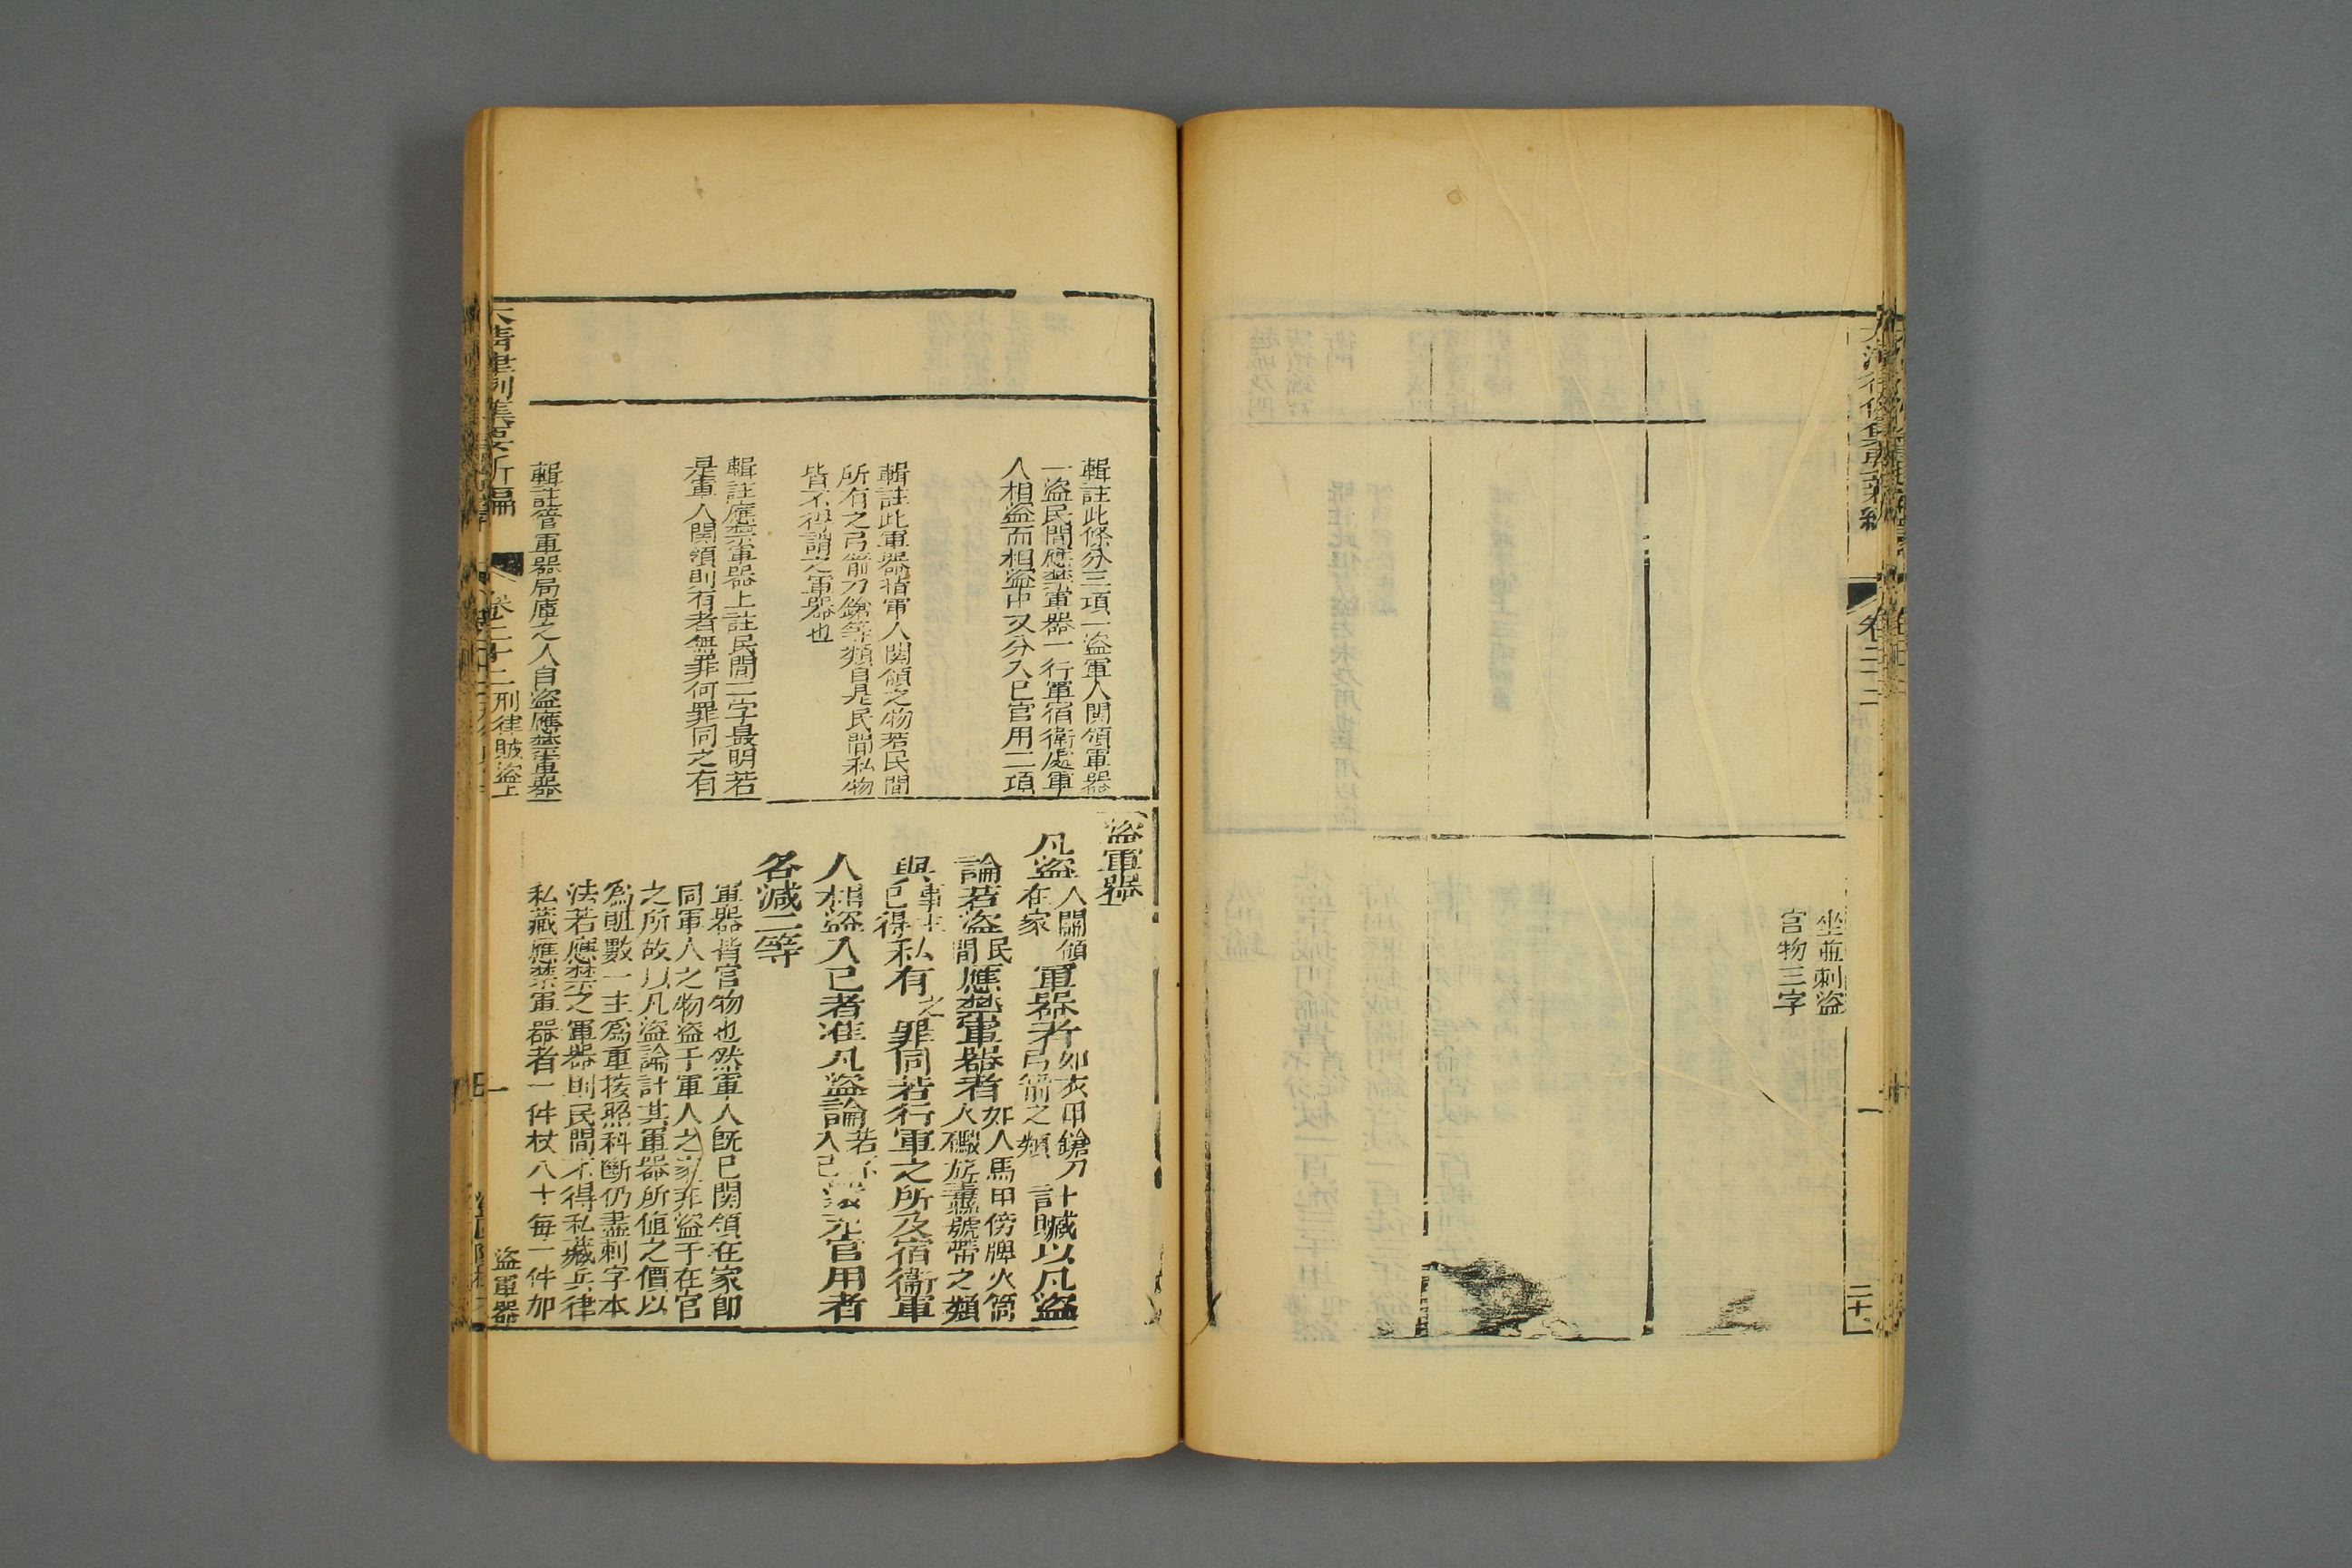 坐並刺盜
官物三字
卷二十二
二十
輯註此條分三項一盜軍人関領軍器
一盜民間應禁軍器一行軍宿衛處軍
人相盜而相盜中又分入已官用二項
輯註此軍器指軍人関領之物若民間
所有之弓箭刀鎗等類自是民間私物
皆不得謂之軍器也
輯註應禁軍器上註民間二字最明若
是軍人関領則有者無罪何罪同之有
輯註管軍器局庫之人自盜應禁軍器
盜軍器
凡盜人關領在家軍器者如衣甲鎗刀弓箭之類計贓以凡盜
論若盜民間應禁軍器者如人馬甲傍牌火筒火礮旗纛號帶之類
與事主已得私有之罪同若行軍之所及宿衛軍
人相盜入已者准凡盜論若不入已還充官用者
各減二等
軍器皆官物也然軍人既已関領在家卽
同軍人之物盜于軍人之家非盜于在官
之所故以凡盜論計其軍器所值之價以
爲贓數一主爲重按照科斷仍盡刺字本
法若應禁之軍器則民間不得私藏兵律
私藏應禁軍器者一件杖八十每一件加
大清律例集要新編
卷二十二
刑律賊盜上
一
盜軍器